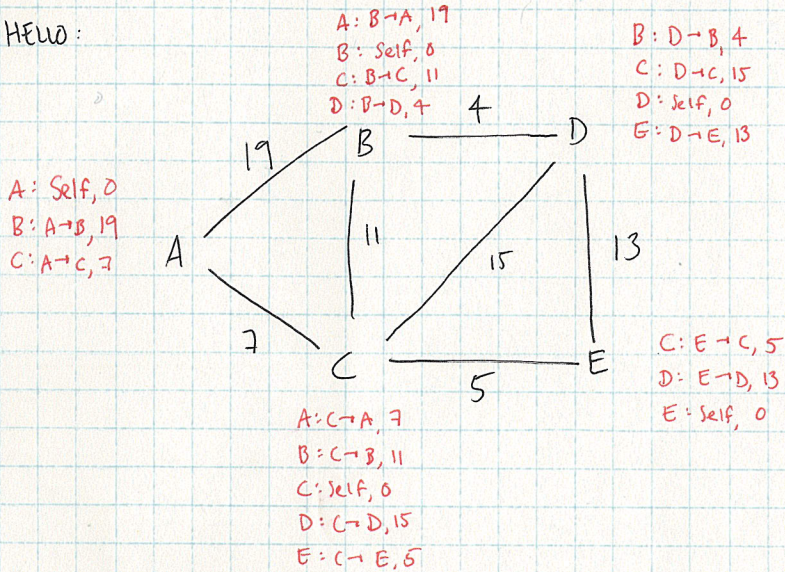 HELLO:
A: B→A, 19
B: Self, 0
C: B→C, 11
D: B→D, 4
B: D→B, 4
C: D→C, 15
D: Self, 0
E: D→E, 13
4
B
D
19
A: Self, 0
B: A→B, 19
C: A→C, 7
A
11
15
13
7
C
E
5
C: E→C, 5
D: E→D, 13
E: Self, 0
A: C→A, 7
B: C→B, 11
C: Self, 0
D: C→D, 15
E: C→E, 5